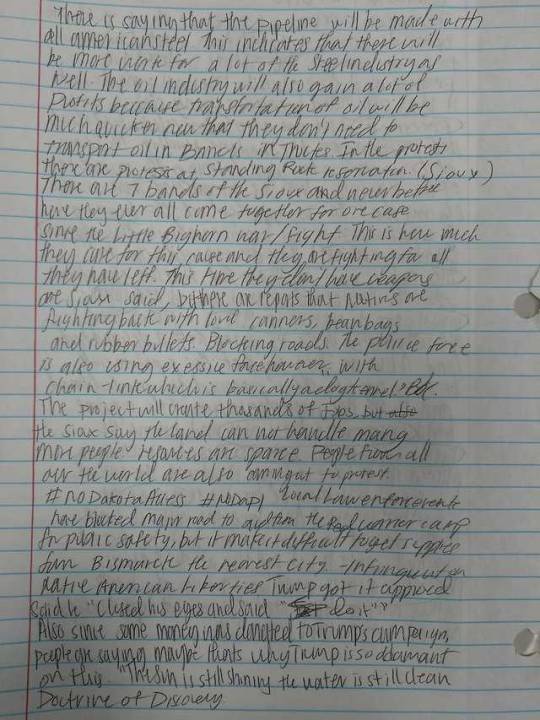 There is saying that the pipeline will be made with
all american steel This indicates that there will
be more work for a lot of the steel industry as
well. The oil industry will also gain a lot of
profits because transportation of oil will be
much quicker now that they don't need to
transport oil in Barrels in Trucks In the protests
there are protests at Standing Rock reservation (Sioux)
There are 7 bands of the Sioux and never before
have they ever all come together for one case
since the Little Bighorn war/fight This is how much
they care for this cause and they are fighting for all
they have left. This time they don't have weapons
one Sioux said, but there are reports that are
fighting back with cannons, bean bags
and rubber bullets. Blocking roads. The police force
is also using exessive force however, with
chain-link which is basically a dog
The project will create thousands of but also
the Siox say the land can not handle many
more people resources are sparce People from all
over the world are also coming out to protest
#noDakotaAccess #NoDapl local Law enforcements
have blocked major road to the camp
for public safety, but it makes it difficult to get supplies
from Bismarck the nearest city. -Infringement on
Native American Liberties Trump got it approved
said he "closed his eyes and said " do it""
Also since some money was donated to Trump's campaign,
people are saying maybe thats why Trump is so adamant
on this. "The sun is still shining the water is still clean
Doctrine of Discovery